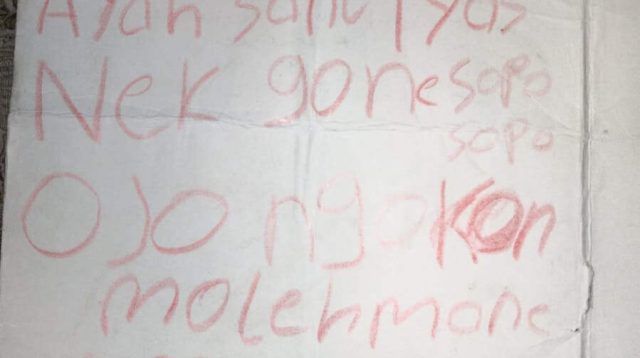 Ayah sanu Iyas
Nek gone sopo
sopo
Ojo ngokon
moleh mone